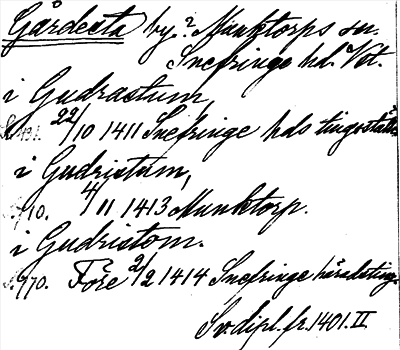 Gårdesta by. Munktorps sn.
Snefringe hd. Vst.
i Gudrastum,
22/10 1411 Snefringe hds tingsställe
i Gudristum,
4/11 1413 Munktorp.
i Gudristom.
Före 2/2 1414 Snefringe häradsting.
Sv. dipl. fr. 1401. II